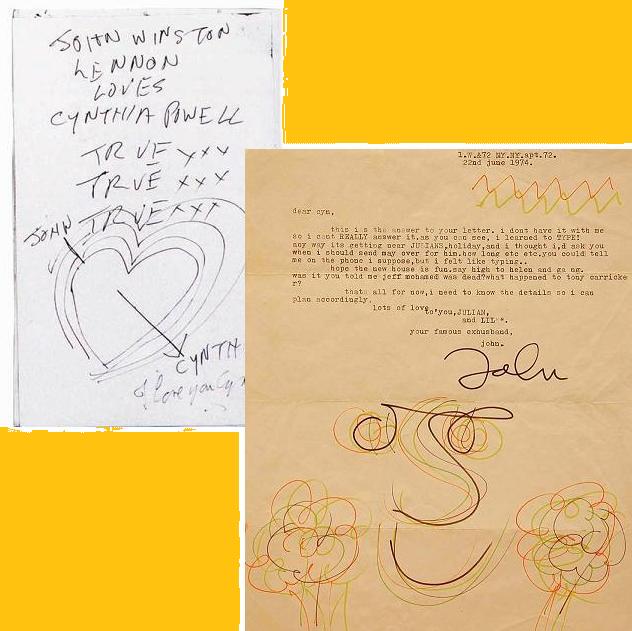 JOHN WINSTON
LENNON
LOVES
CYNTHIA POWELL
TRUE xxx
TRUE xxx
TRUE xxx
JOHN
CYNTH
I love you Cy
1.W.&72 NY.NY.apt.72.
22nd june 1974.
dear cyn,
this is the answer to your letter. i dont have it with me
so i cant REALLY answer it.as you can see, i learned to TYPE!
any way its getting near JULIANS,holiday,and i thought i,d ask you
when i should send may over for him.how long etc etc.you could tell
me on the phone i suppose,but i felt like typing..
hope the new house is fun.say high to helen and ga ng.
was it you told me jeff mohamed was dead?what happened to tony carricke
r?
thats all for now,i need to know the details so i can
plan accordingly.
lots of love
to you,JULIAN,
and LIL**.
your famous exhusband,
john.
John